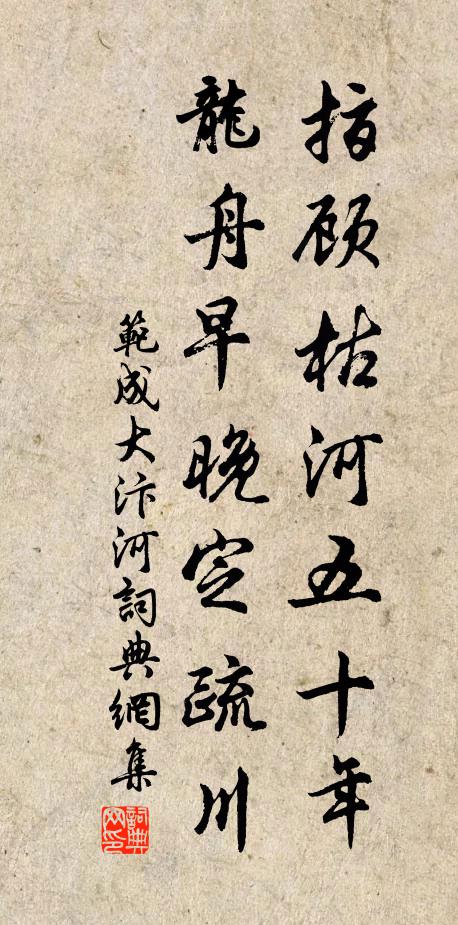 指顾枯河五十年
龍舟早晚定疏川
範成大汴河詞典網集
詞典
网印